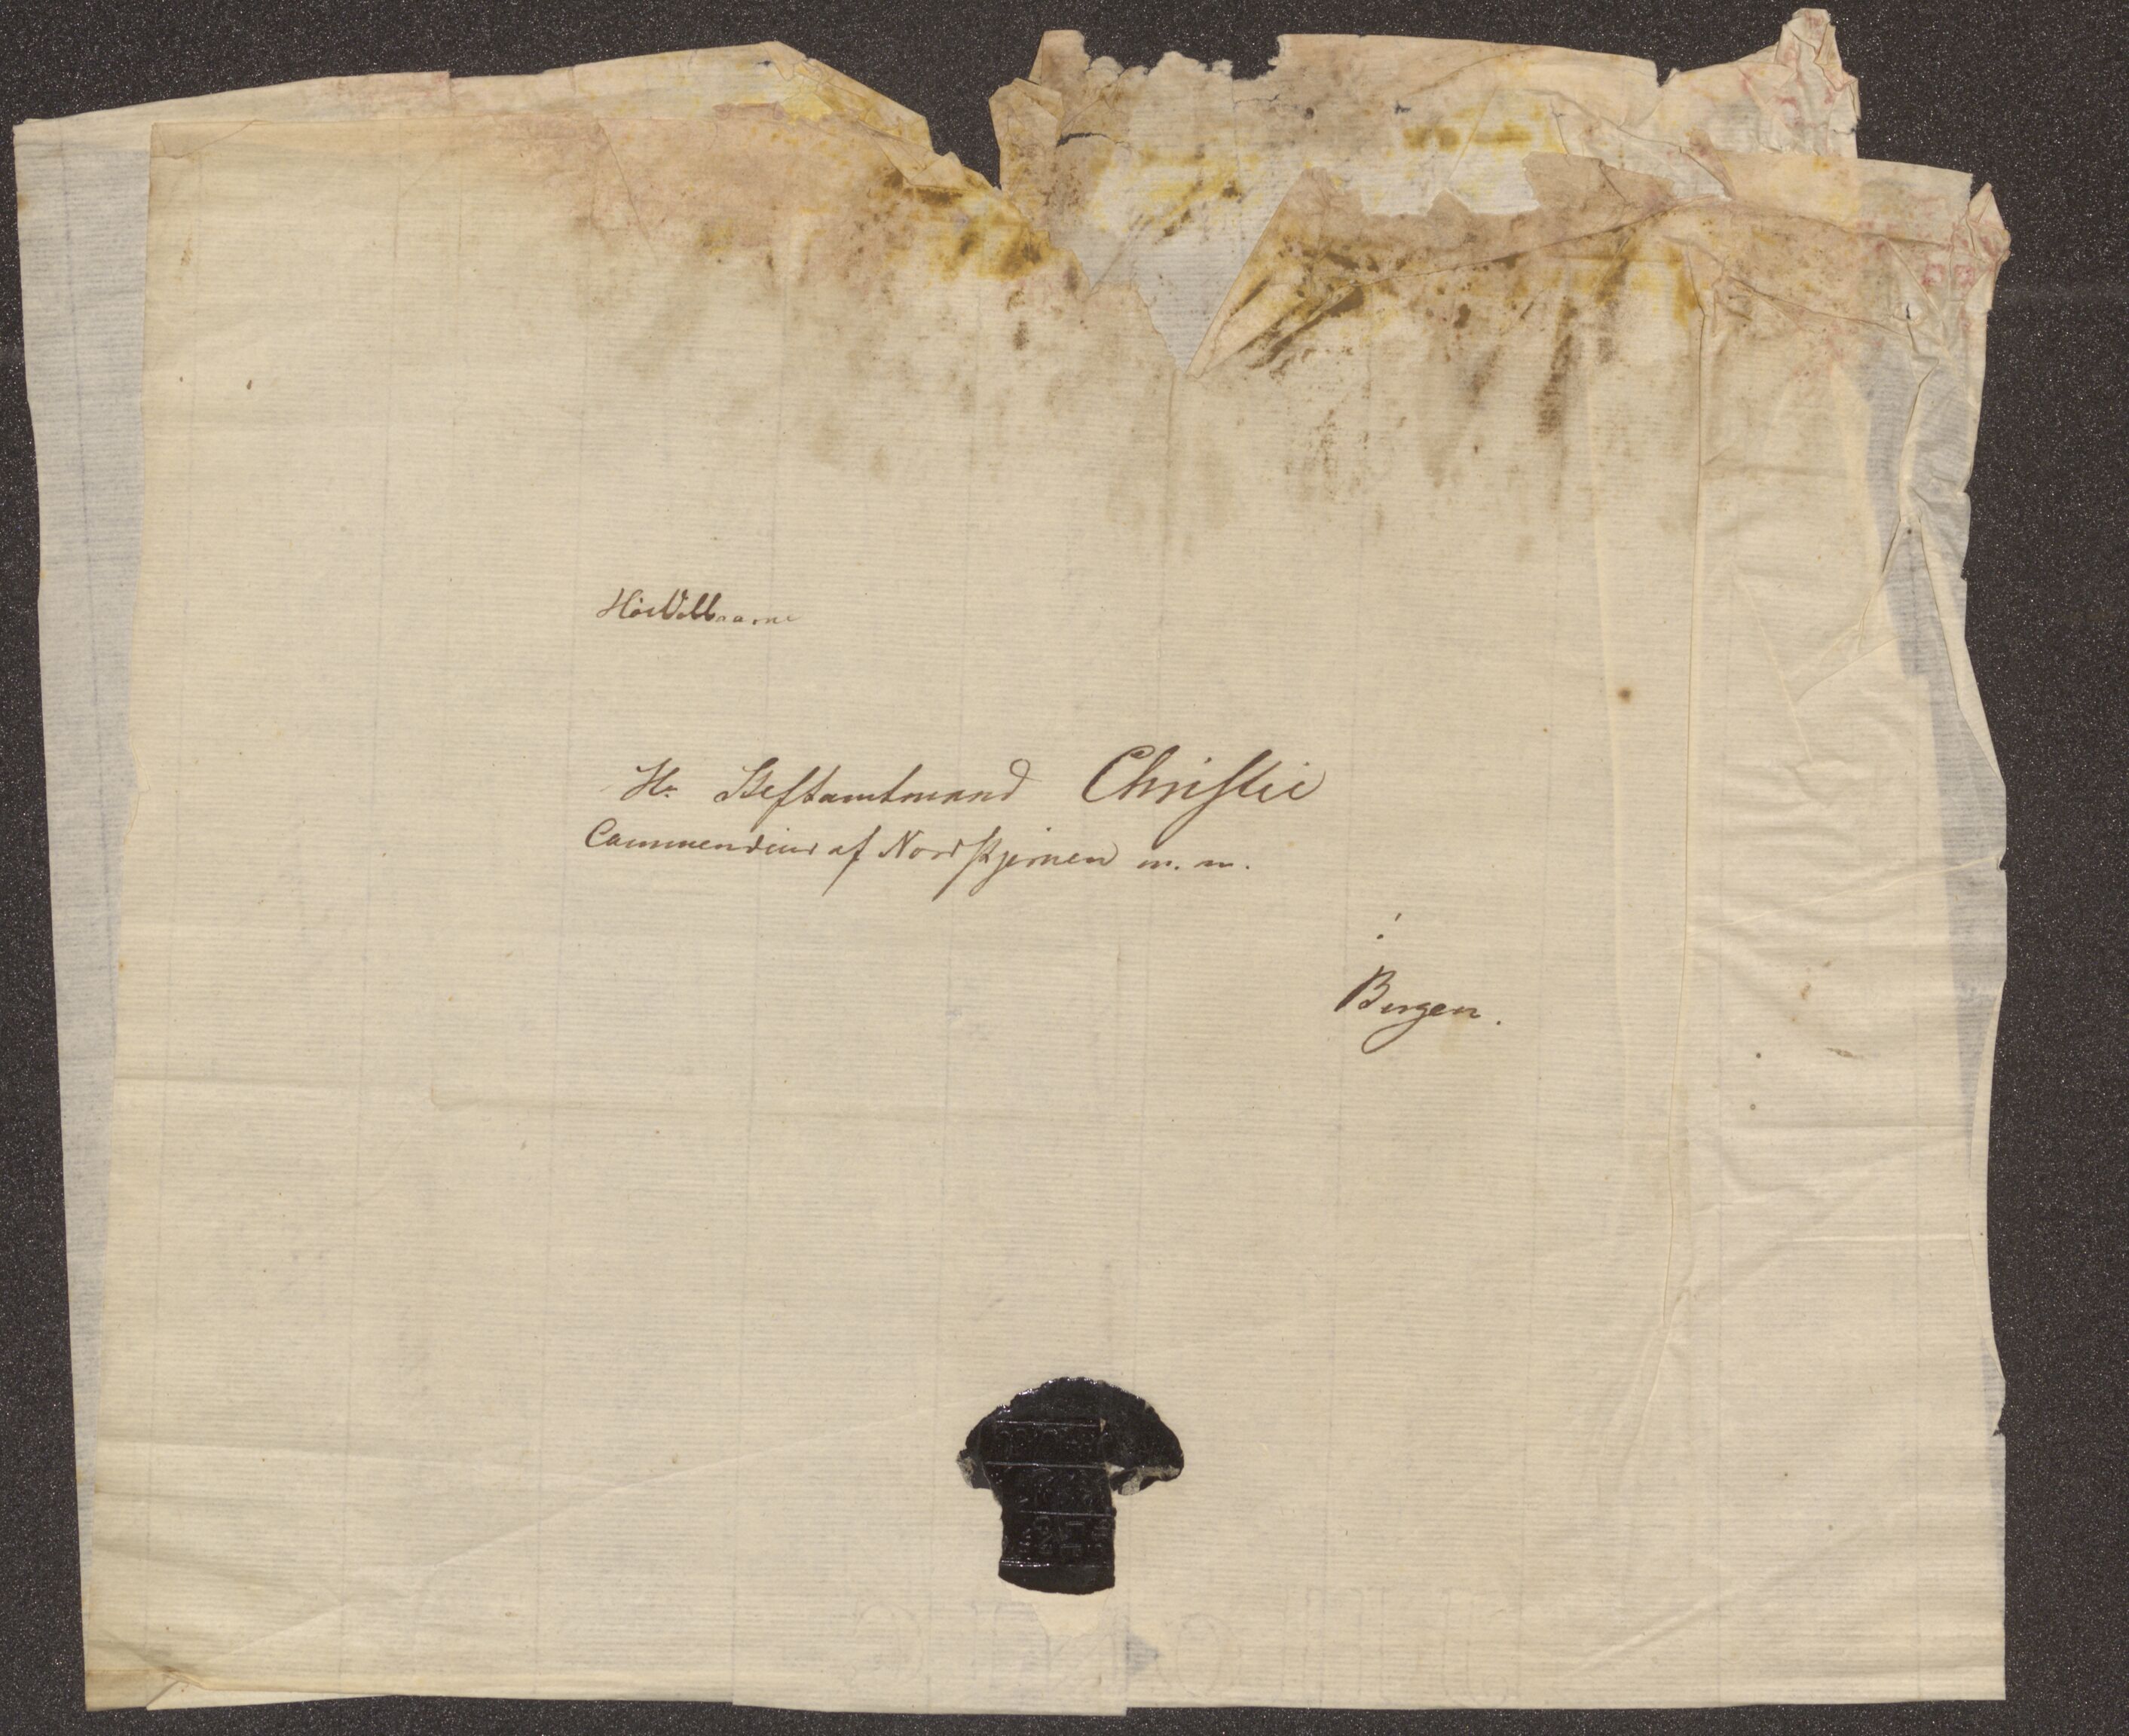 HöiVelbaarne
Hr. Stiftamtmand Christie
Commendeur af Nordstjernen m. m.
!
Bergen.